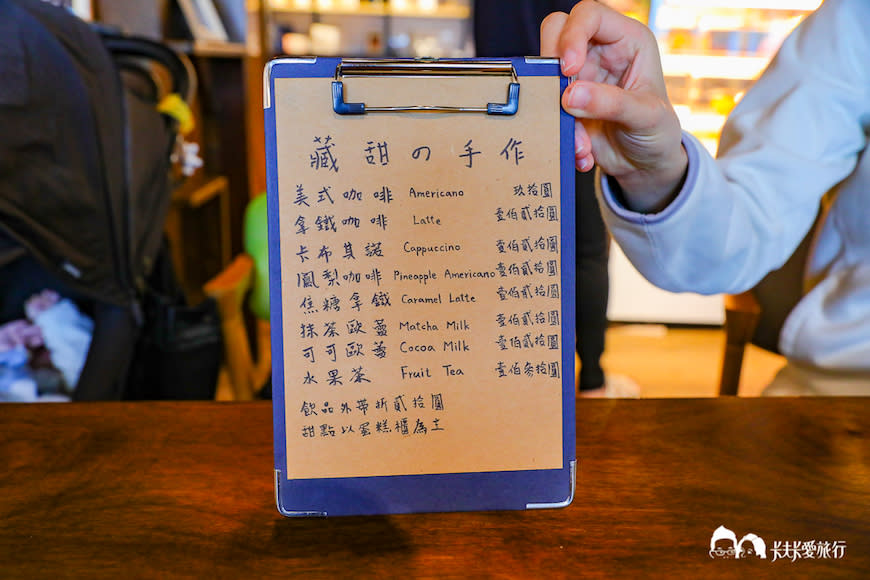 藏甜の手作
美式咖啡 Americano 玖拾圓
拿鐵咖啡 Latte 壹佰貳拾圓
卡布其諾 Cappuccino 壹佰貳拾圓
鳳梨咖啡 Pineapple Americano 壹佰貳拾圓
焦糖拿鐵 Caramel Latte 壹佰貳拾圓
抹茶歐蕾 Matcha Milk 壹佰貳拾圓
可可歐蕾 Cocoa Milk 壹佰貳拾圓
水果茶 Fruit Tea 壹佰參拾圓
飲品外帶折貳拾圓
甜點以蛋糕櫃為主
卡夫卡愛旅行